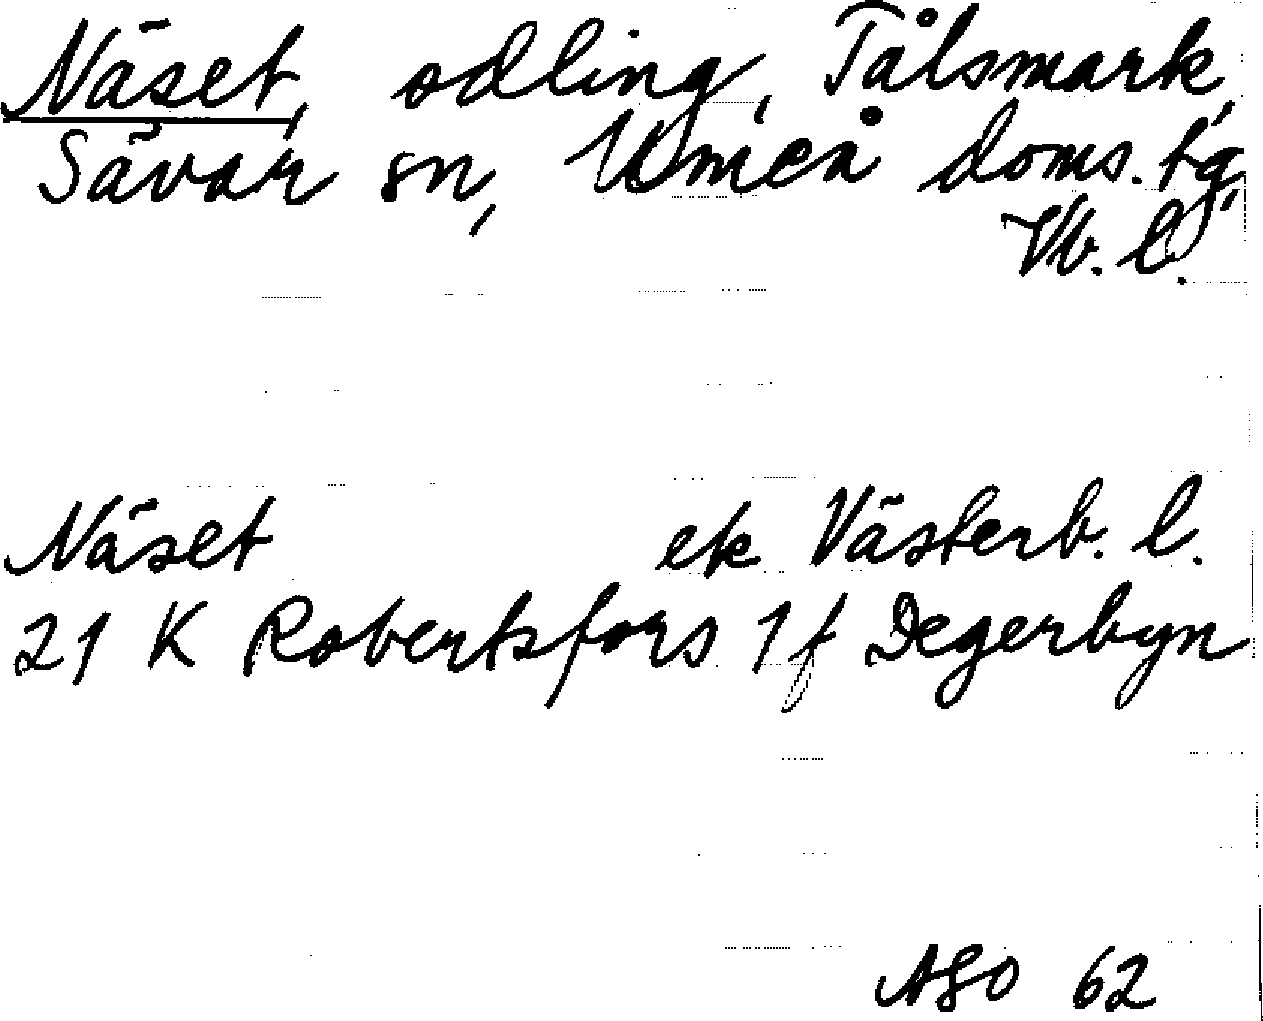 Näset, odling, Tålsmark,
Sävar sn, Umeå doms. tg,
Vb. l.
Näset ek Västerb. l.
21 K Robertsfors 1 f Degerbyn
ASO 62